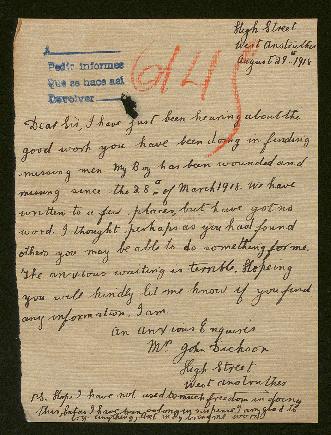 High Street
West Anstruther
August 29th 1918
A
Pedir informes
Que se hace así
Devolver
Dear Sir, I have just been hearing about the
good work you have been doing in finding
missing men My Boy has been wounded and
missing since the 28th of March 1918. We have
written to a few places, but have got no
word. I thought perhaps as you had found
others you may be able to do something for me.
The anxious waiting is terrible. Hopeing
you will kindly let me know if you find
any information, I am
an anxious Enquirer
Mr John Dickson
High Street
West Anstruther
P.S. Hope I have not used to much freedom in doing
this, but as I have been so long in suspence I am glad to
try anything,